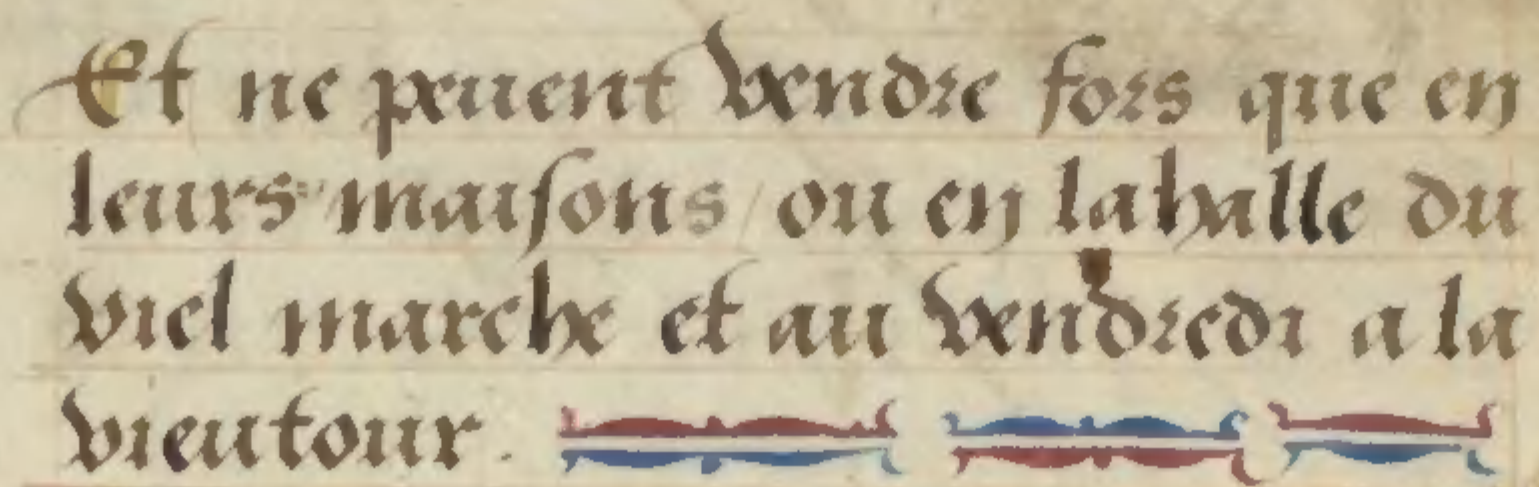 Et ne peuent vendre fors que en
leurs maisons / ou en lahalle du
viel marche et au vendredi a la
vieutour.